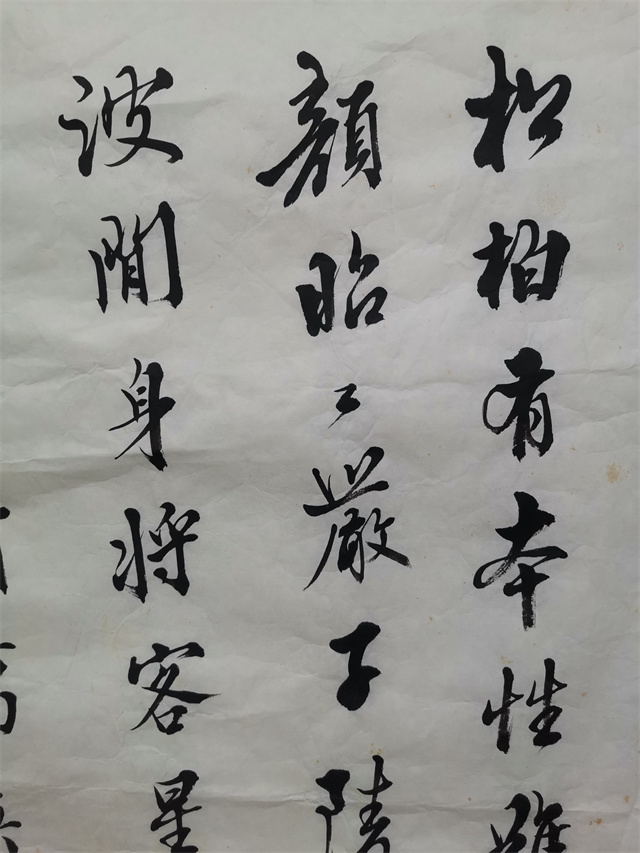 松柏有本性
顏昭々嚴子陵
波間身将客星